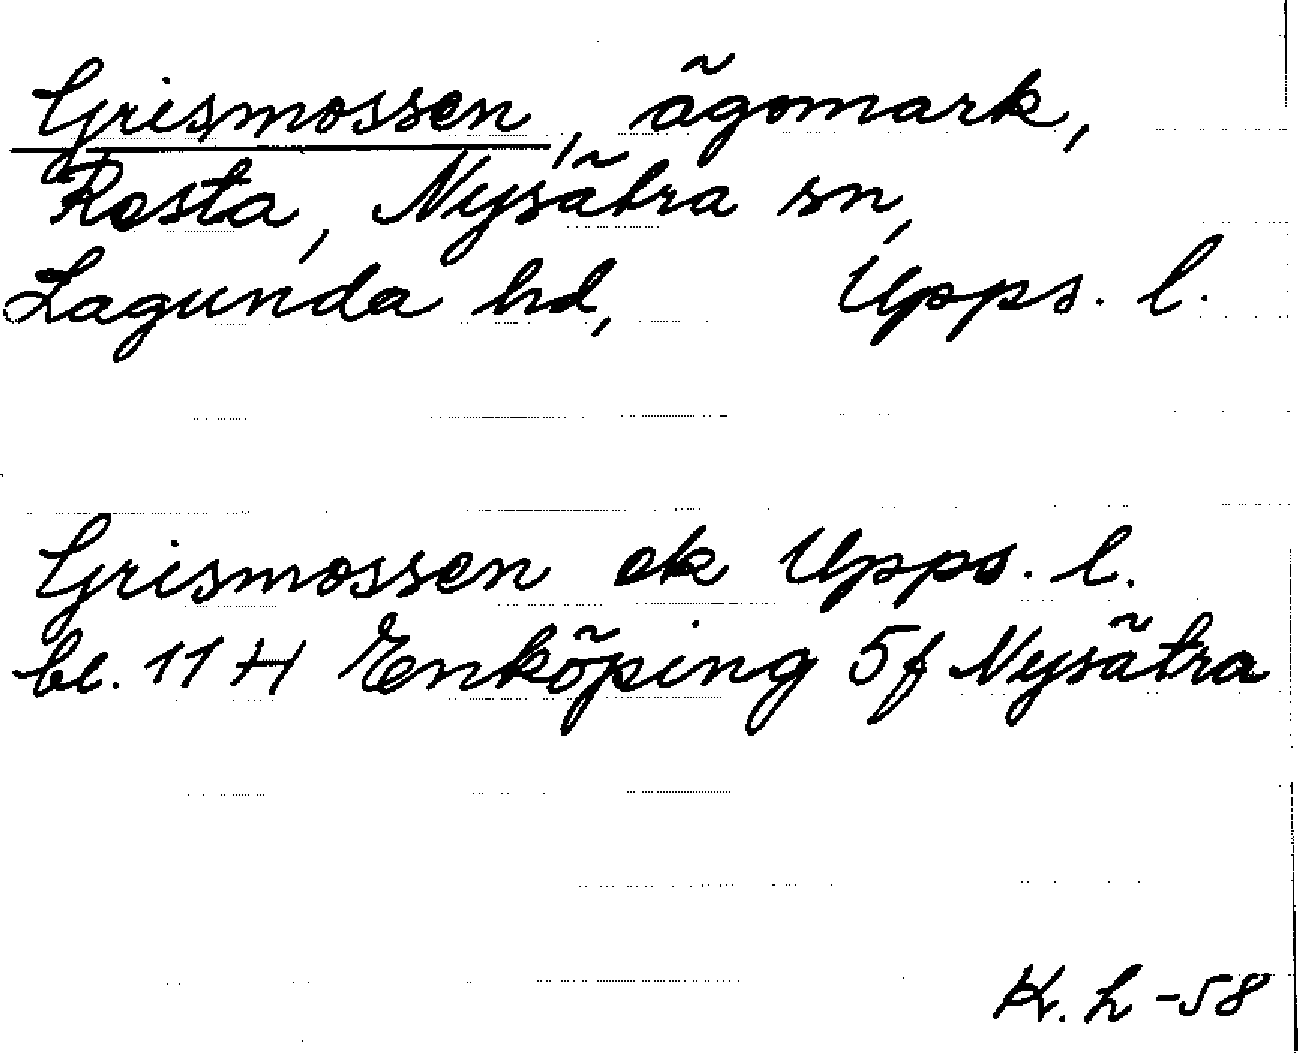 Grismossen, ägomark,
Rosta, Nysätra sn,
Lagunda hd, Upps. l.
Grismossen ek Upps. l.
bl. 11 H Enköping 5f Nysätra
K. L -58